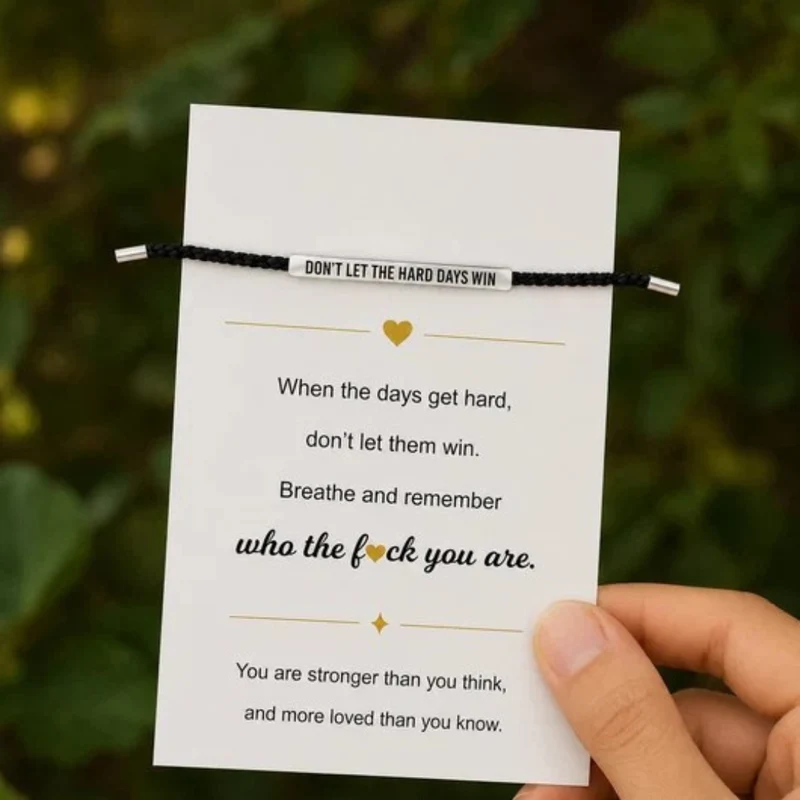 DON'T LET THE HARD DAYS WIN
When the days get hard,
don't let them win.
Breathe and remember
who the f💛ck you are.
You are stronger than you think,
and more loved than you know.